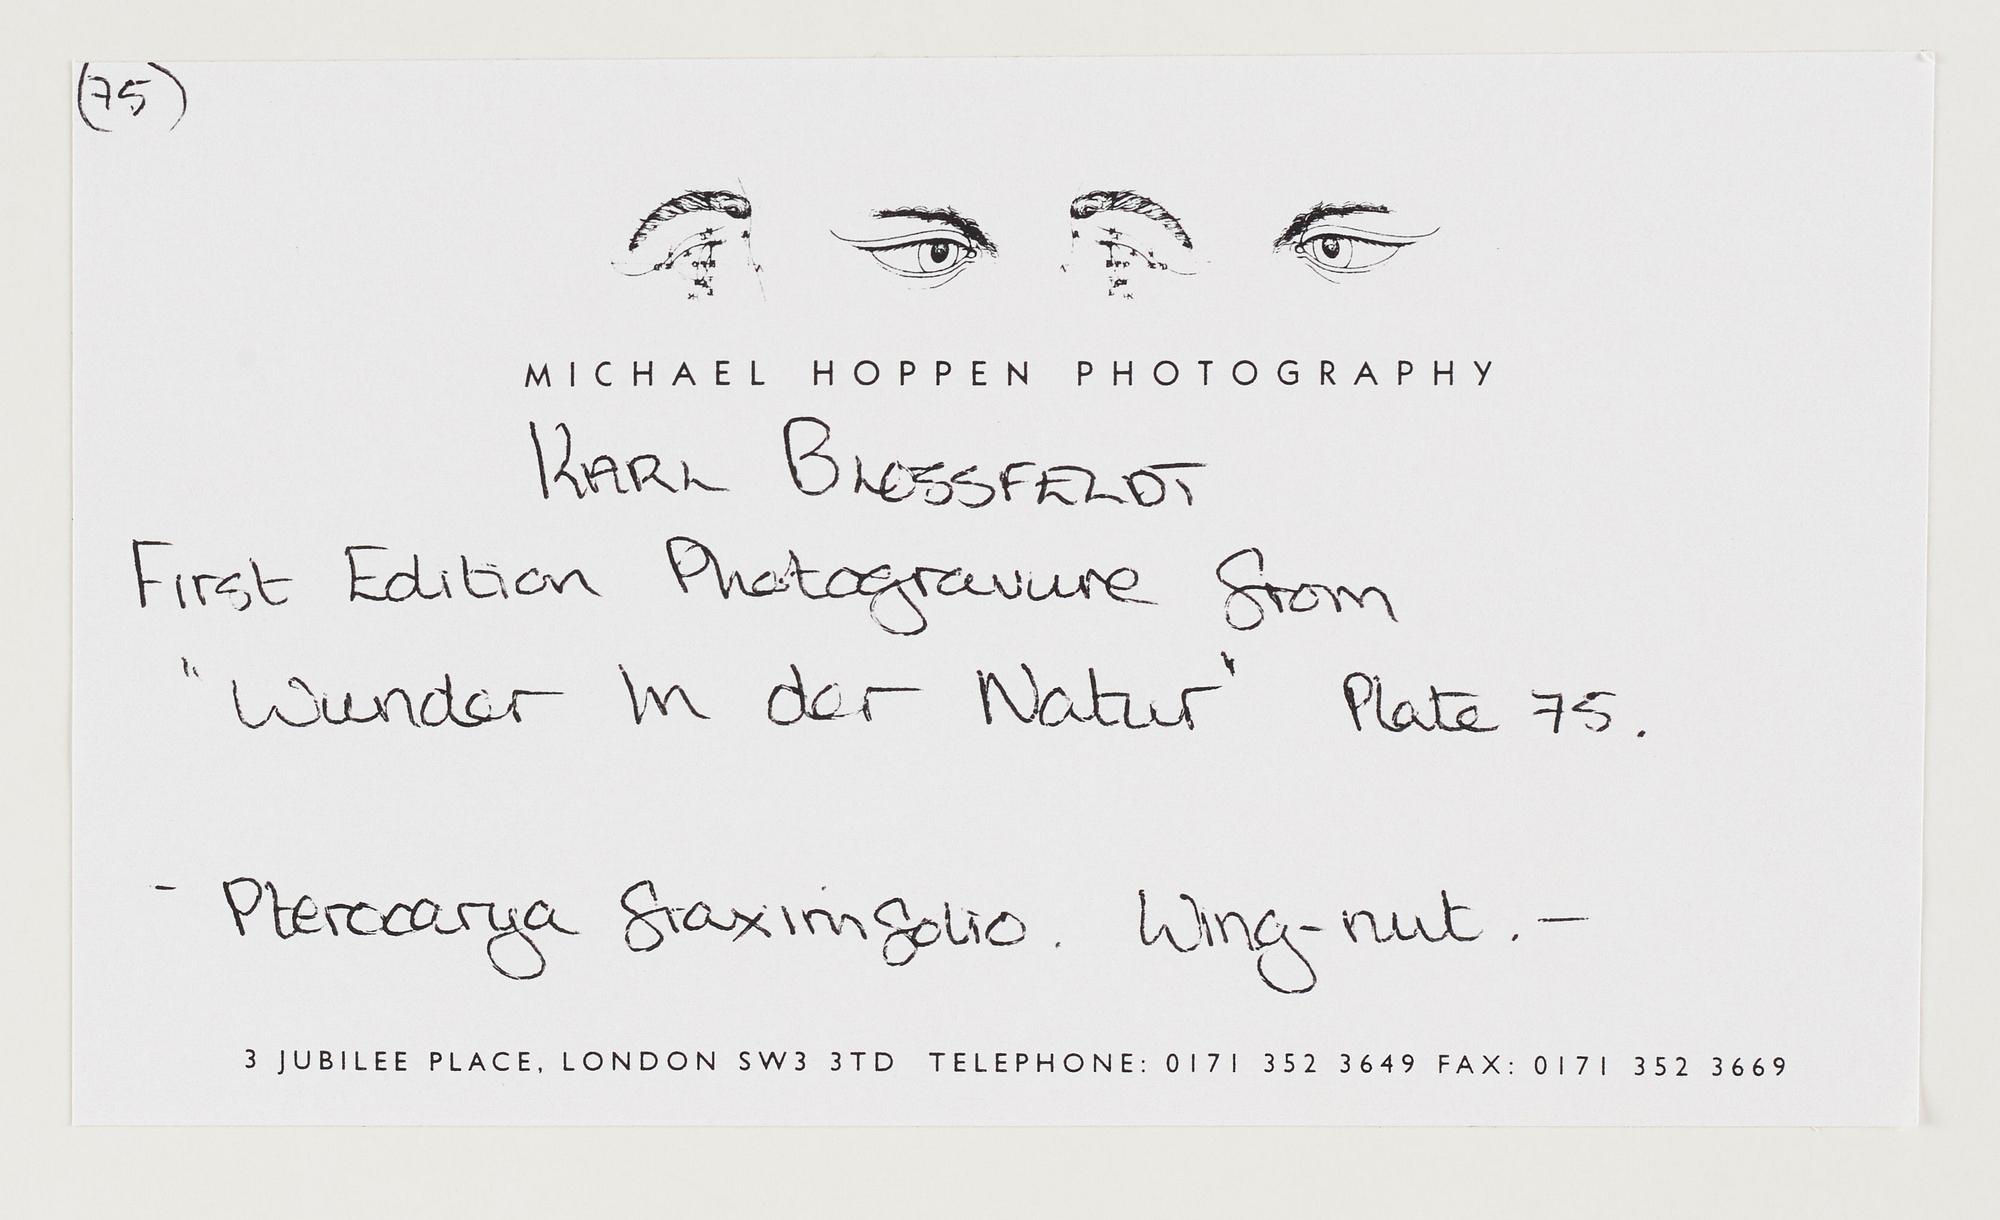 (75)
MICHAEL HOPPEN PHOTOGRAPHY
KARL BLOSSFELDT
First Edition Photogravure from
"Wunder In der Natur" Plate 75.
- Pterocarya fraxinifolio. Wing-nut. -
3 JUBILEE PLACE, LONDON SW3 3TD TELEPHONE: 0171 352 3649 FAX: 0171 352 3669